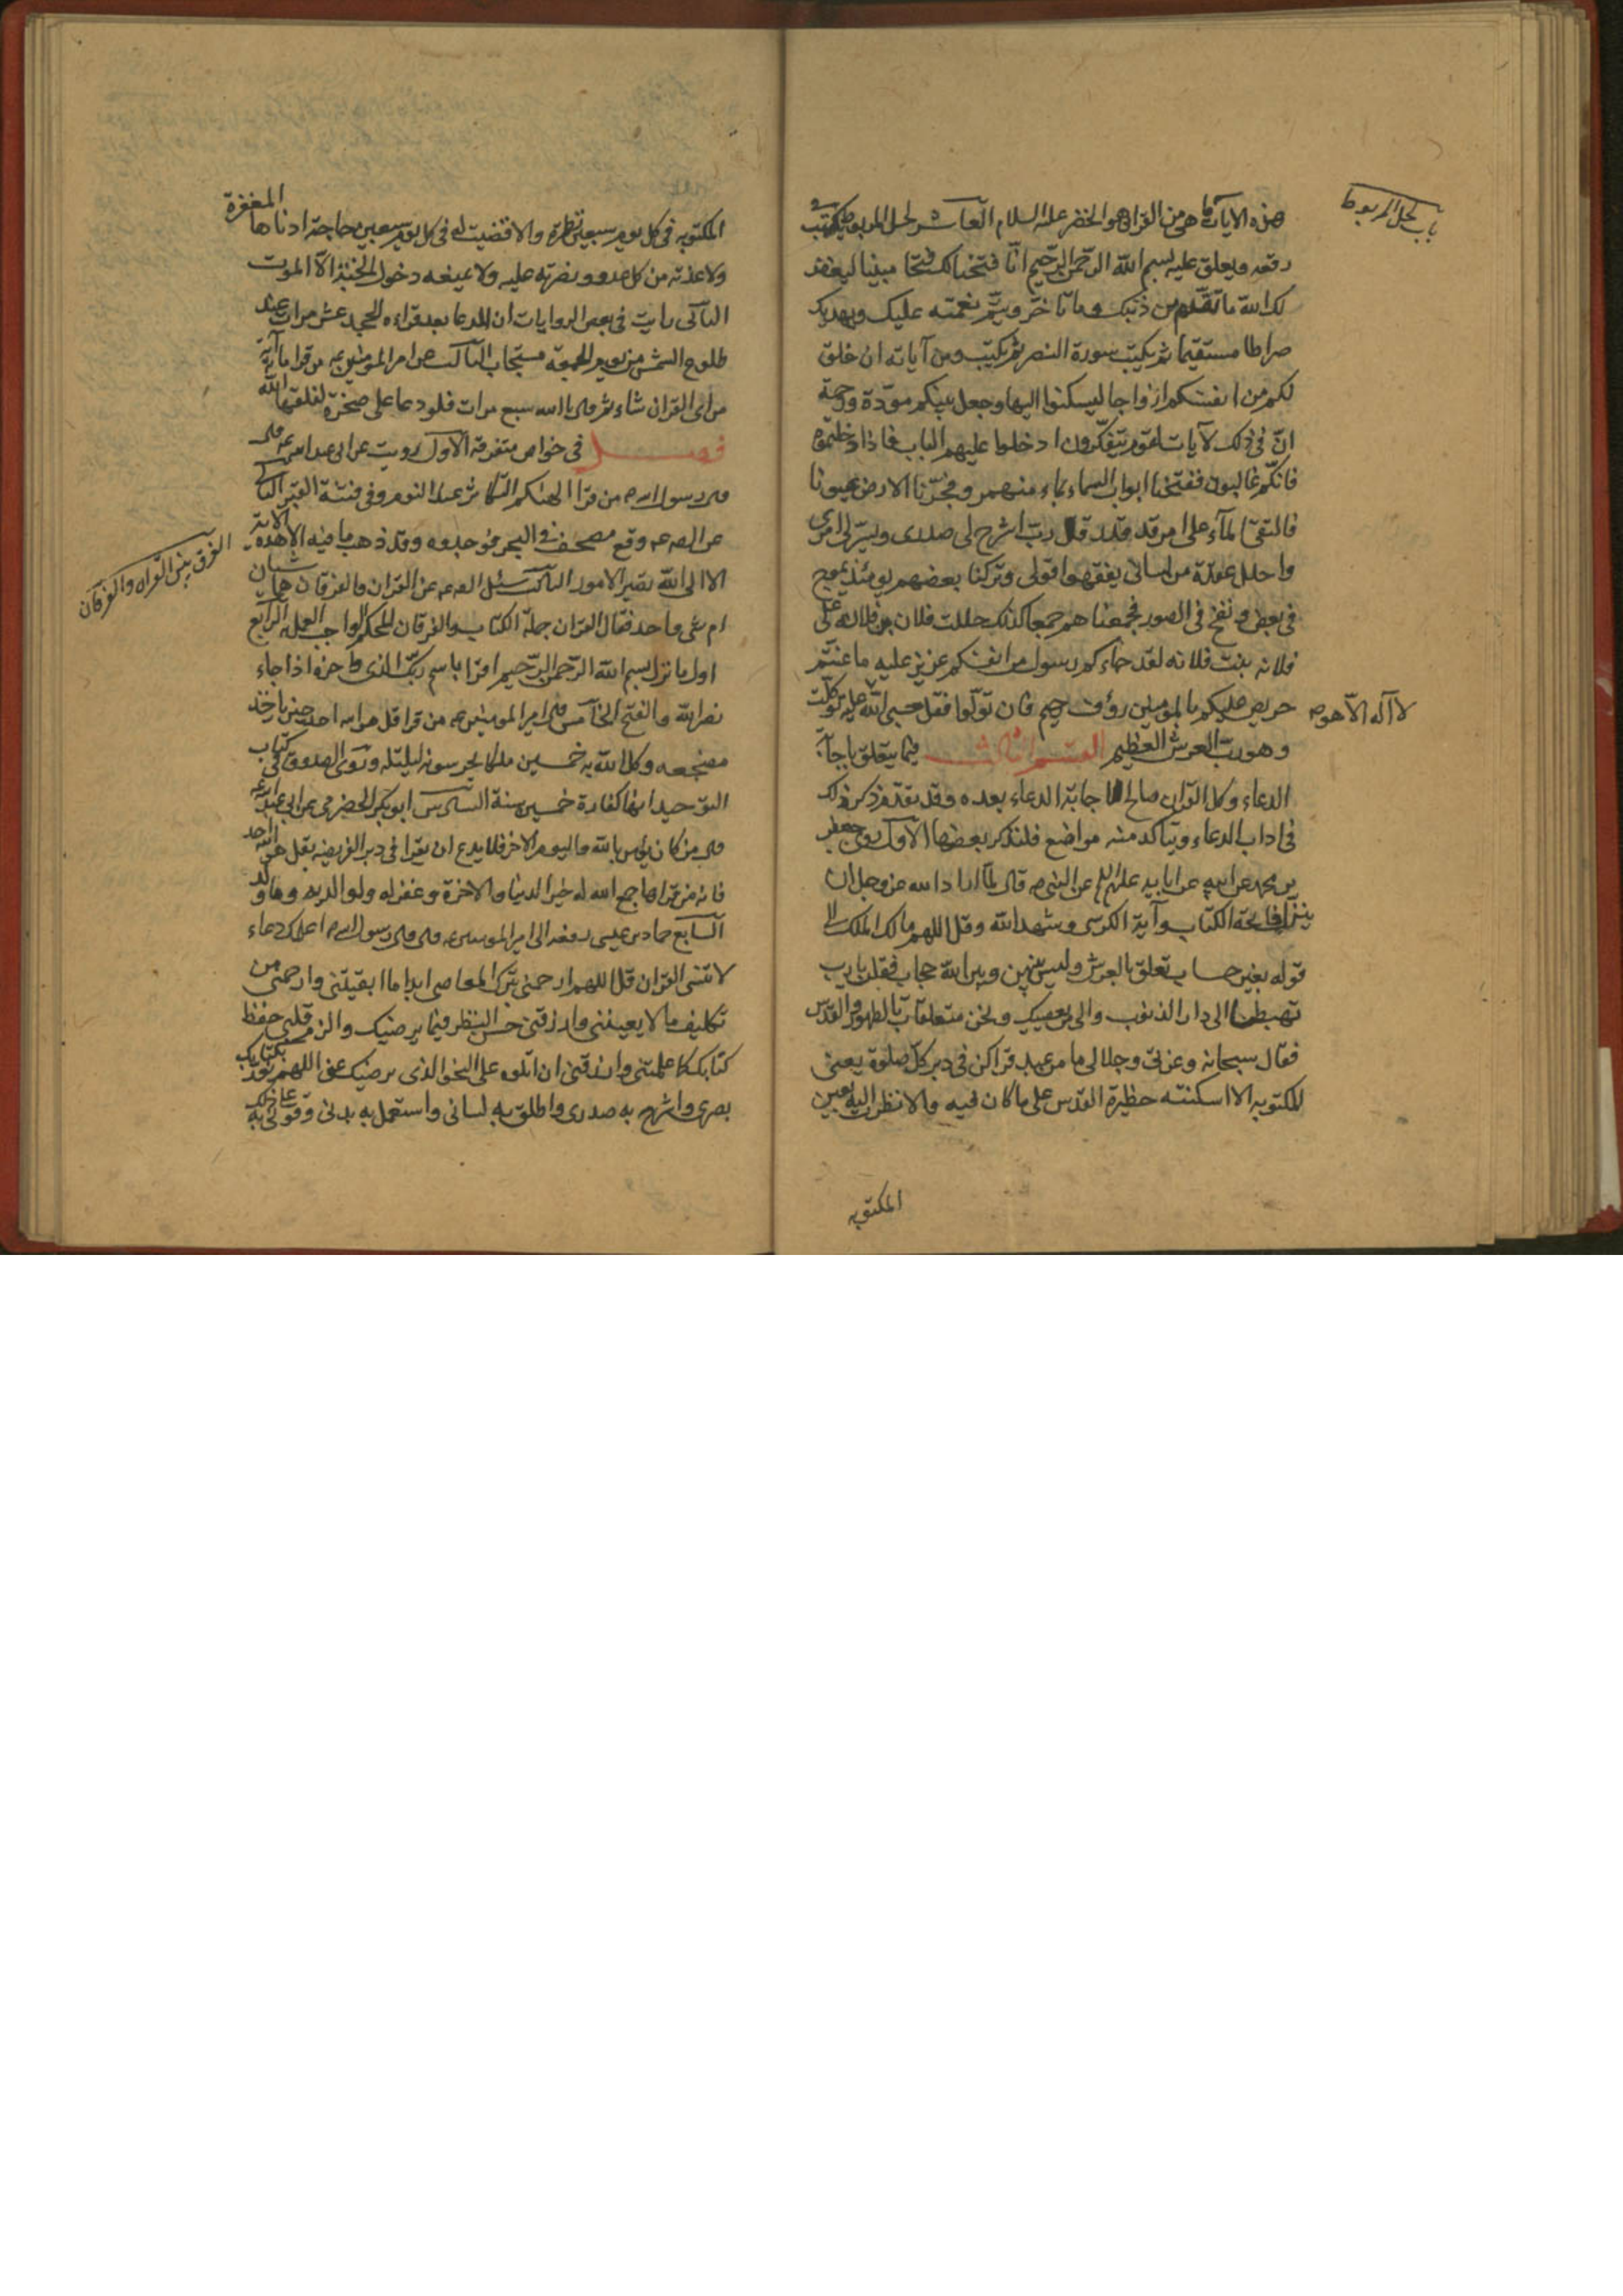 هذه الايات ما هى من القران هو الخضر عليه السلام العاشر لحل المربوط يكتب فى
باب لحل المربوط
رقعه ويعلق عليه بسم الله الرحمن الرحيم انّا فتحنا لك فتحا مبينا ليغفر
لك الله ما تقدّم من ذنبك وما تاخّر ويتمّ نعمته عليك ويهديك
صراطا مستقيما ثم يكتب سورة النصر ثم يكتب ومن آياته ان خلق
لكم من انفسكم ازواجا لتسكنوا اليها وجعل بينكم مودّة ورحمة
انّ فى ذلك لآيات لقوم يتفكّرون ادخلوا عليهم الباب فاذا دخلتموه
فانكم غالبون ففتحنا ابواب السماء بماء منهمر وفجّرنا الارض عيونا
فالتقى الماء على امر قد قدر قال ربّ اشرح لى صدرى ويسّر لى امرى
واحلل عقدة من لسانى يفقهوا قولى وتركنا بعضهم يومئذ يموج
فى بعض ونفخ فى الصور فجمعناهم جمعا كذلك حللت فلان بن فلانه على
فلانه بنت فلانه لقد جاءكم رسول من انفسكم عزيز عليه ما عنتم
حريص عليكم بالمومنين رؤف رحيم فان تولّوا فقل حسبى الله عليه توكّلت
لا آله الاّ هو صح
وهو ربّ العرش العظيم القسم الثالث فيما يتعلق باجابة
الدعاء وكل القران صالح لاجابة الدعاء بعده وقد تقدم ذكر ذلك
فى اداب الدعاء ويتاكد منه مواضع فلنذكر بعضها الاول روى جعفر
بن محمد عن ابيه عن ابايه عليهم السلم عن النبى ص قال لمّا اراد الله عز وجل ان
ينزل فاتحة الكتاب وآية الكرسى وشهد الله وقل اللهم مالك الملك الى
قوله بغير حساب تعلق بالعرش وليس بينهن وبين الله حجاب فقلن يا رب
تهبطنا الى دار الذنوب والى من يعصيك ونحن متعلقات بالطهور والقدس
فقال سبحانه وعزتى وجلالى ما من عبد قراكن فى دبر كل صلوة يعنى
المكتوبه الا اسكنته حظيرة القدس على ما كان فيه والا نظرت اليه بعين
المكتوبه
المكتوبه فى كل يوم سبعين نظرة والا قضيت له فى كل يوم سبعين حاجة ادناها المغفرة
ولا عذته من كل عدو ونصرته عليه ولا يمنعه دخول الجنة الاّ الموت
الثانى رايت فى بعض الروايات ان الدعا بعد قراءه الجحد عشر مرات عند
طلوع الشمس من يوم الجمعه مستجاب الثالث عن امير المومنين ع من قرا مائة آية
من اى القران شاء ثم قال يا الله سبع مرات فلو دعا على صخرة لفلقها الله
فصل فى خواص متفرقه الاول رويت عن ابى عبد الله ع قال
قال رسول الله ص من قرا الهيكم التكاثر عند النوم وقى فتنة القبر الثانى
عن الص ع وقع مصحف فى البحر فوجدوه وقد ذهب ما فيه الا هذه الاية
الفرق بين القران والفرقان
الا الى الله تصير الامور الثالث سئل الص ع عن القران والفرقان هما شيان
ام شى واحد فقال القران جملة الكتاب والفرقان المحكم الواجب العمل به الرابع
اول ما نزل بسم الله الرحمن الرحيم اقرا باسم ربك الذى واخره اذا جاء
نصر الله والفتح الخامس قال امير المومنين ع من قرا قل هو الله احد حين ياخذ
مضجعه وكل الله به خمسين ملكا يحرسونه ليلته وروى الصدوق فى كتاب
التوحيد انها كفارة خمسين سنة السادس ابو بكر الحضرمى عن ابى عبد الله ع
قال من كان يومن بالله واليوم الاخر فلا يدع ان يقرا فى دبر الفريضه بقل هو الله احد
فانه من قراها جمع الله له خير الدنيا والاخرة وغفر له ولوالديه وما ولد
السابع حماد بن عيسى رفعه الى امير المومنين ع قال قال رسول الله ص اعلمك دعاء
لا تنسى القران قل اللهم ارحمنى بترك المعاصى ابدا ما ابقيتنى وارحمنى من
تكليف ما لا يعيننى وارزقنى حسن النظر فيما يرضيك والزم قلبى حفظ
كتابك كما علمتنى وارزقنى ان اتلوه على النحو الذى يرضيك عنى اللهم نوّر بكتابك
بصرى واشرح به صدرى واطلق به لسانى واستعمل به بدنى وقوّنى به على ذلك